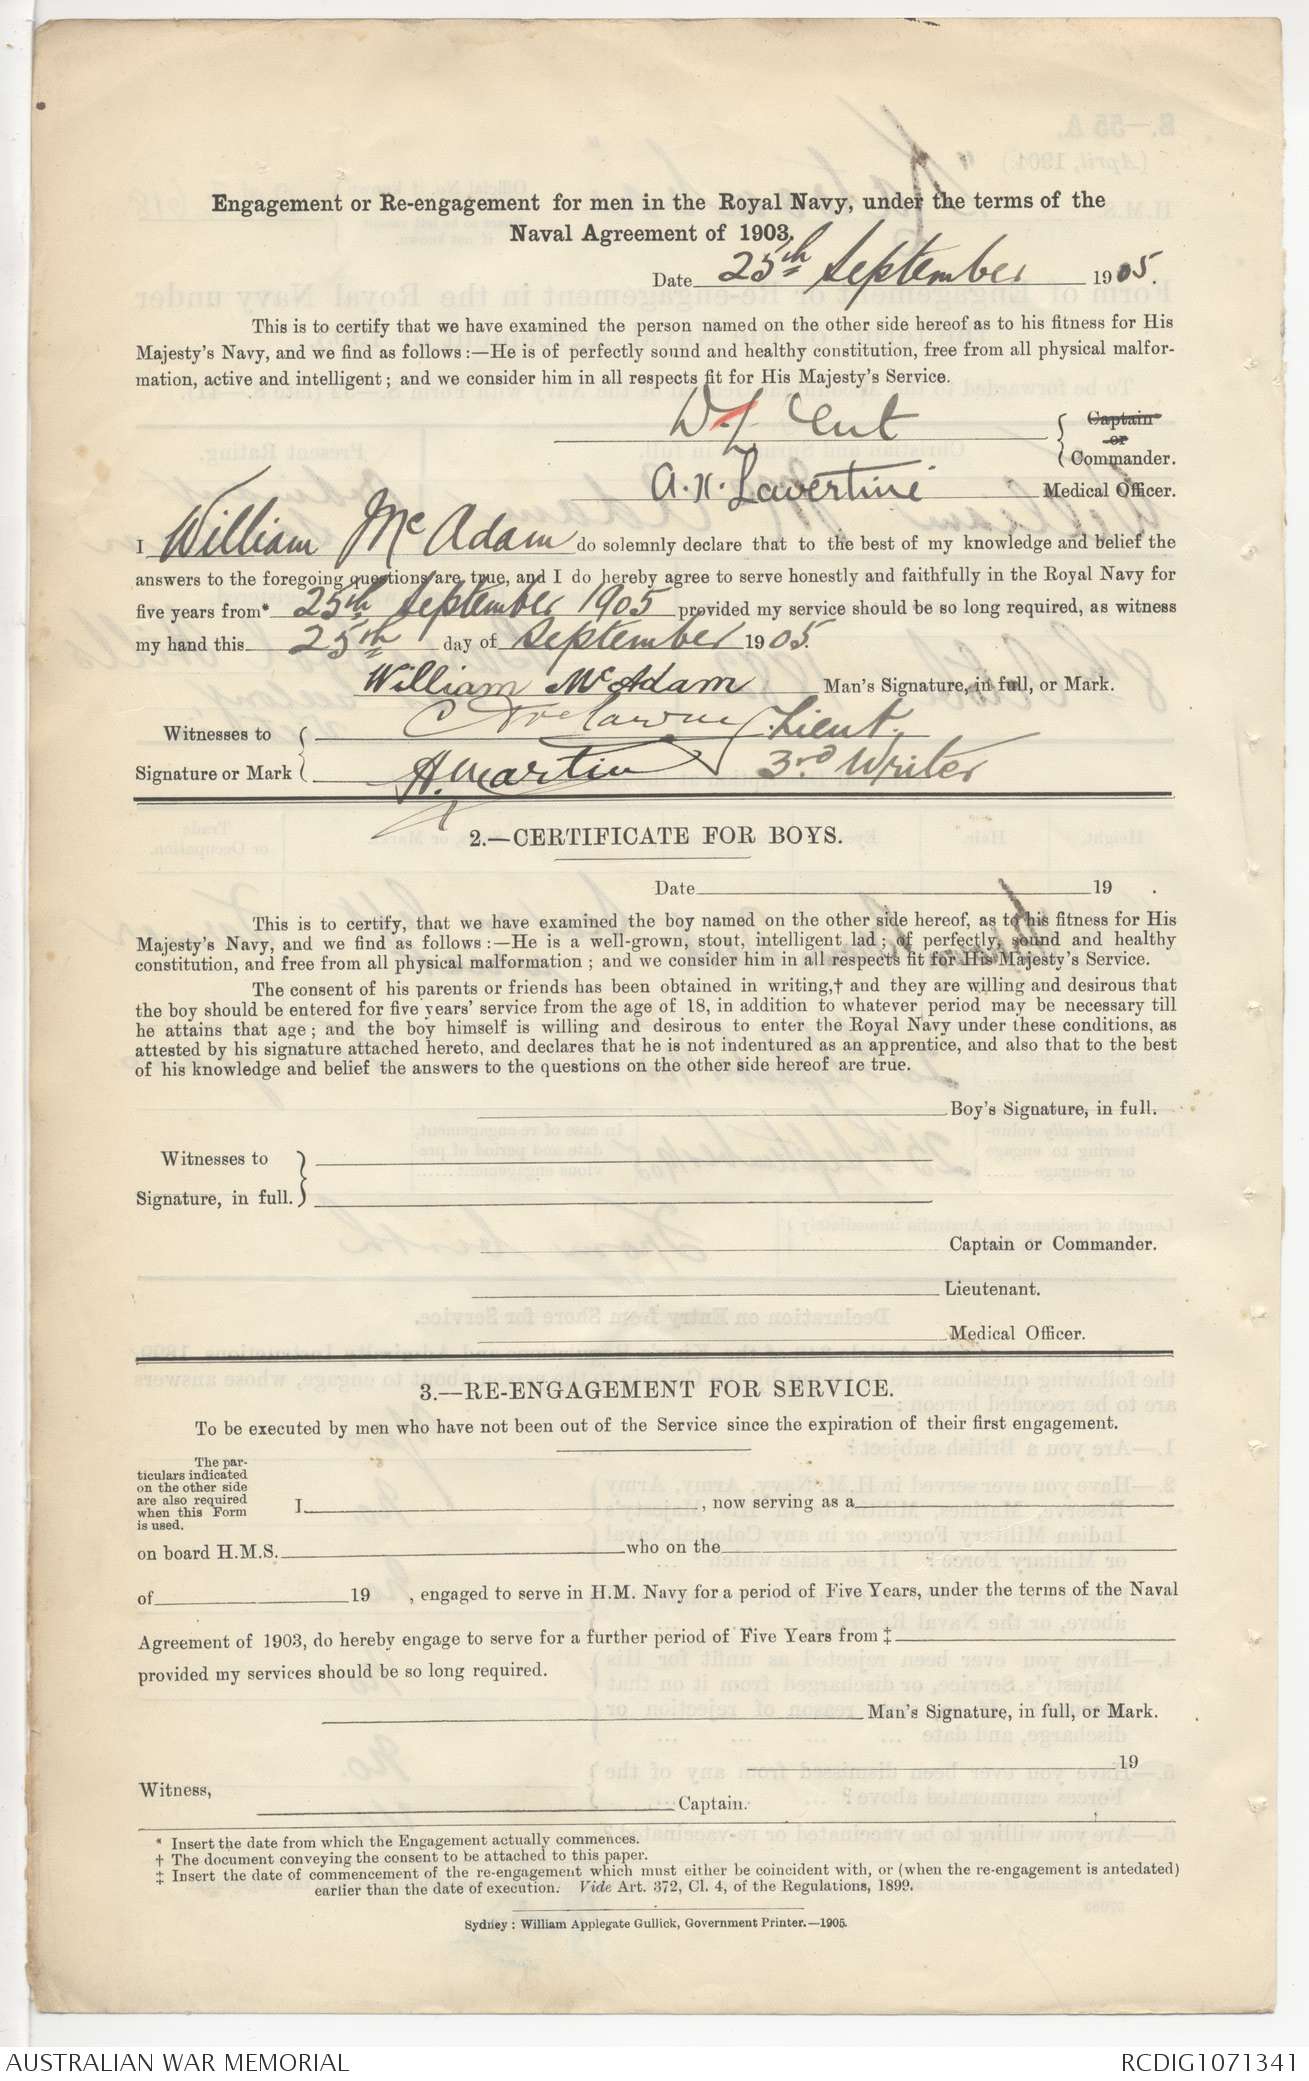 Engagement or Re-engagement for men in the Royal Navy, under the terms of the
Naval Agreement of 1903.
Date 25th September 1905.
This is to certify that we have examined the person named on the other side hereof as to his fitness for His
Majesty's Navy, and we find as follows :—He is of perfectly sound and healthy constitution, free from all physical malfor-
mation, active and intelligent ; and we consider him in all respects fit for His Majesty's Service.
Captain
or
Commander.
Medical Officer.
I William McAdam do solemnly declare that to the best of my knowledge and belief the
answers to the foregoing questions are true, and I do hereby agree to serve honestly and faithfully in the Royal Navy for
five years from* 25th September 1905 provided my service should be so long required, as witness
my hand this 25th day of September 1905.
William McAdam Man's Signature, in full, or Mark.
Witnesses to Lieut.
Signature or Mark H. Martin 3rd Writer
2.—CERTIFICATE FOR BOYS.
Date 19 .
This is to certify, that we have examined the boy named on the other side hereof, as to his fitness for His
Majesty's Navy, and we find as follows :—He is a well-grown, stout, intelligent lad ; of perfectly, sound and healthy
constitution, and free from all physical malformation ; and we consider him in all respects fit for His Majesty's Service.
The consent of his parents or friends has been obtained in writing,† and they are willing and desirous that
the boy should be entered for five years' service from the age of 18, in addition to whatever period may be necessary till
he attains that age ; and the boy himself is willing and desirous to enter the Royal Navy under these conditions, as
attested by his signature attached hereto, and declares that he is not indentured as an apprentice, and also that to the best
of his knowledge and belief the answers to the questions on the other side hereof are true.
Boy's Signature, in full.
Witnesses to
Signature, in full.
Captain or Commander.
Lieutenant.
Medical Officer.
3.—RE-ENGAGEMENT FOR SERVICE.
To be executed by men who have not been out of the Service since the expiration of their first engagement.
The par-
ticulars indicated
on the other side
are also required
when this Form
is used.
I , now serving as a
on board H.M.S. who on the
of 19 , engaged to serve in H.M. Navy for a period of Five Years, under the terms of the Naval
Agreement of 1903, do hereby engage to serve for a further period of Five Years from ‡
provided my services should be so long required.
Man's Signature, in full, or Mark.
19
Witness,
Captain.
* Insert the date from which the Engagement actually commences.
† The document conveying the consent to be attached to this paper.
‡ Insert the date of commencement of the re-engagement which must either be coincident with, or (when the re-engagement is antedated)
earlier than the date of execution. Vide Art. 372, Cl. 4, of the Regulations, 1899.
Sydney : William Applegate Gullick, Government Printer.—1905.
AUSTRALIAN WAR MEMORIAL RCDIG1071341